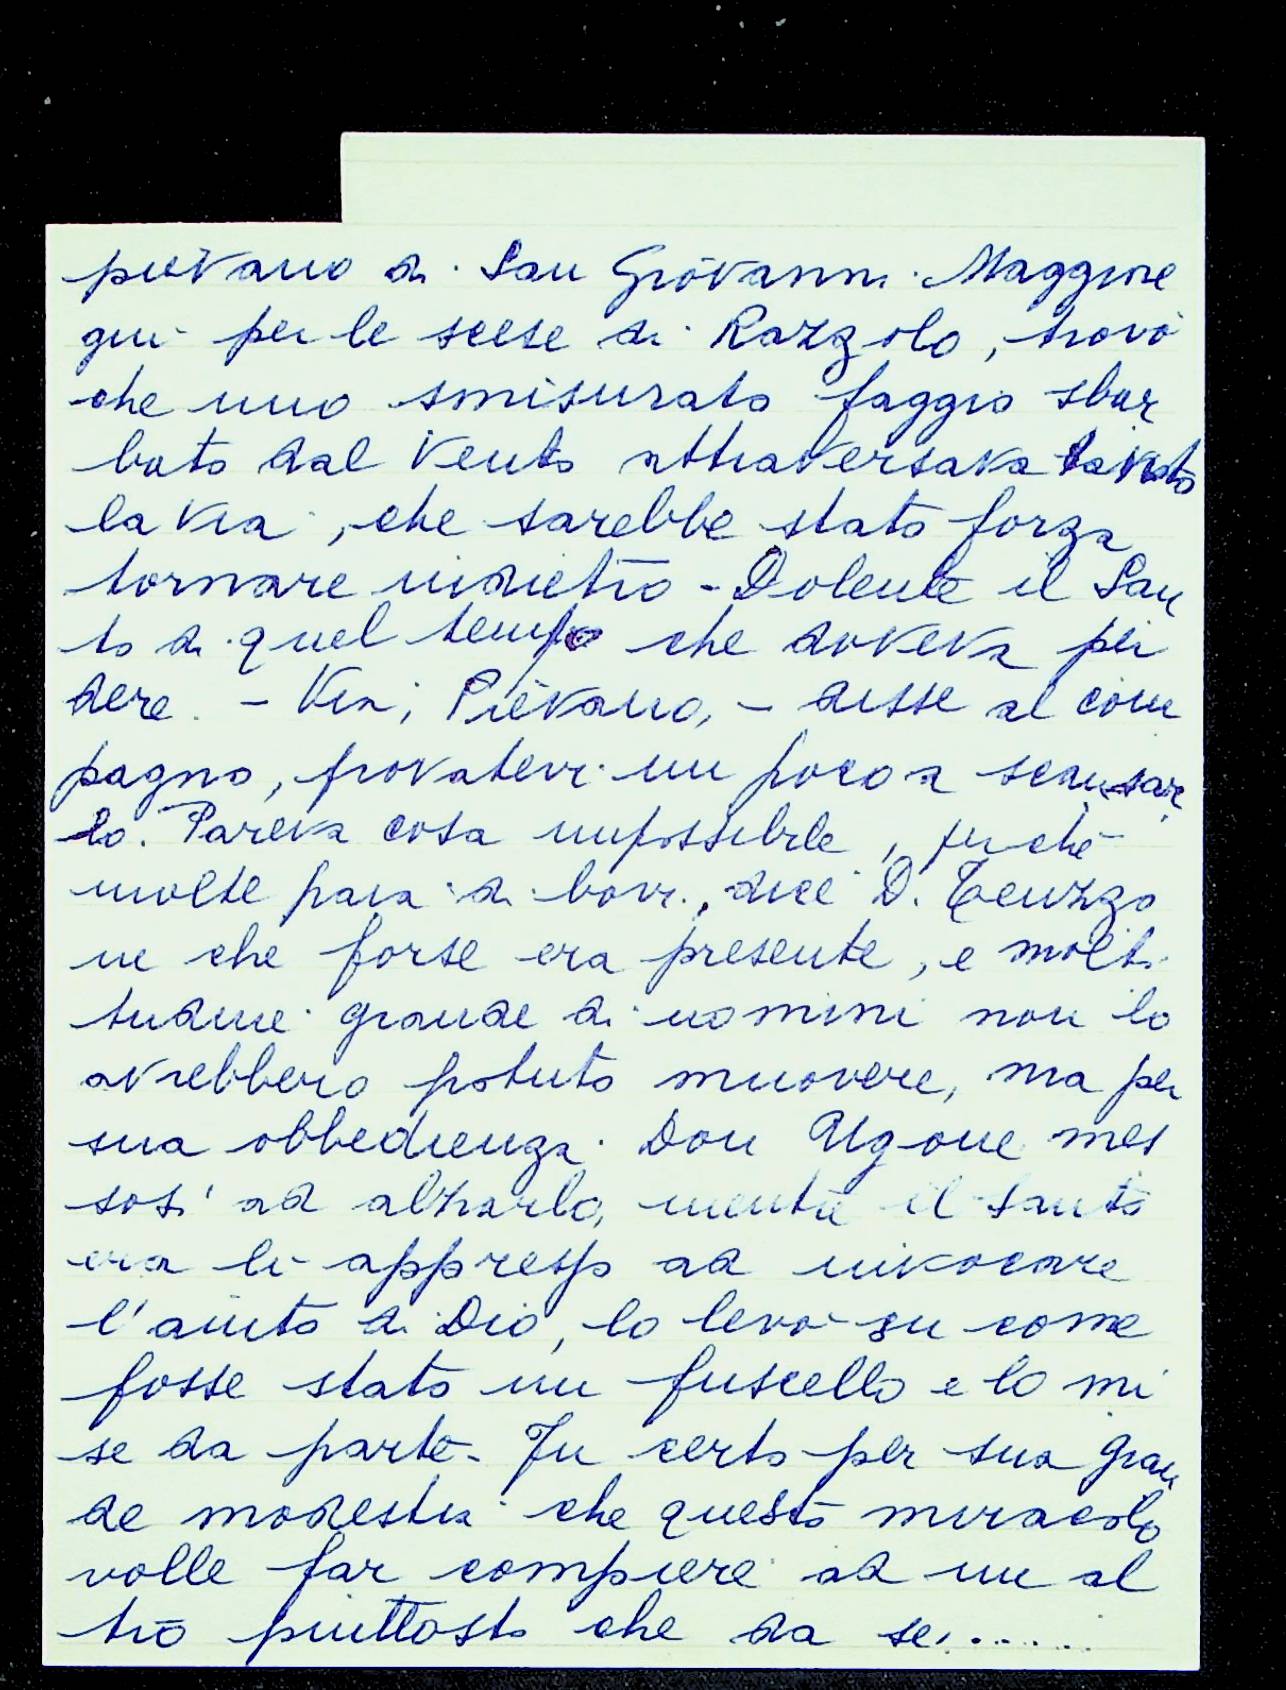 pievano di San Giovanni Maggiore
giù per le scese di Razzolo, trovò
che uno smisurato faggio sbar
bato dal vento attraversava
la via, che sarebbe stato forza
tornare indietro - Dolente il San
to di quel tempo che doveva per
dere. - Via, Pievano, - disse al com
pagno, provatevi un poco a scansar
lo. Pareva cosa impossibile, perché
molte paia di bovi, dice D. Teuzzo
ne che forse era presente, e molti
tudine grande di uomini non lo
avrebbero potuto muovere, ma per
sua obbedienza Don Ugone mes
sosi ad alzarlo, mentre il Santo
era lì appresso ad invocare
l'aiuto di Dio, lo levò su come
fosse stato un fuscello e lo mi
se da parte - Fu certo per sua gran
de modestia che questo miracolo
volle far compiere ad un al
tro piuttosto che da se.......